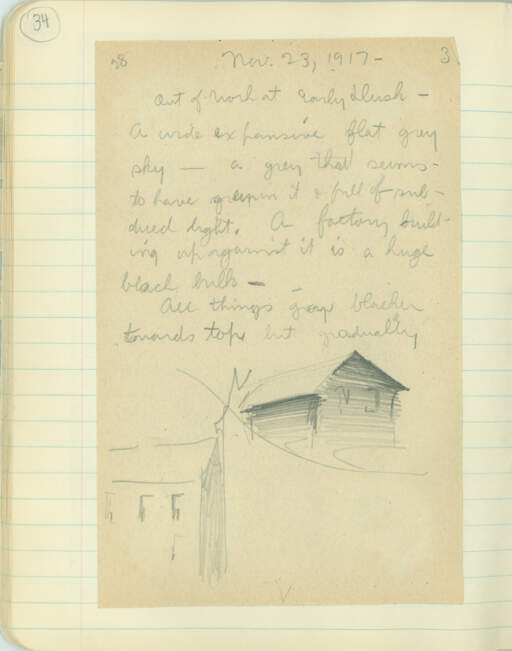 34
28 Nov. 23, 1917 - 3
Out of work at early dusk -
A wide expansive flat grey
sky — a grey that seems
to have green in it & full of sub-
dued light. A factory build-
ing up against it is a huge
black bulk —
All things grow blacker
towards top but gradually